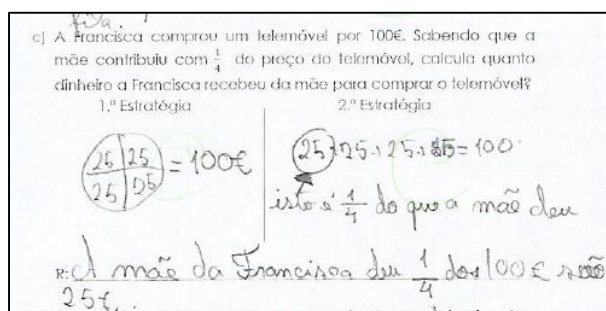 fixa.
c] A Francisca comprou um telemóvel por 100€. Sabendo que a
mãe contribuiu com 1/4 do preço do telemóvel, calcula quanto
dinheiro a Francisca recebeu da mãe para comprar o telemóvel?
1.ª Estratégia 2.ª Estratégia
25 25
25 25 = 100€
25+25+25+25=100
isto é 1/4 do que a mãe deu
R: A mãe da Francisca deu 1/4 dos 100€ são
25€.